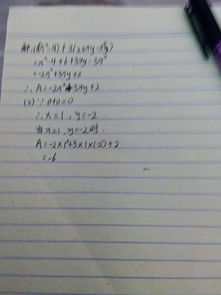 解:(1)(x²-4)+3(2+xy-x²)
=x²-4+6+3xy-3x²
=-2x²+3xy+2
∴A=-2x²+3xy+2
(2)∵
∴x=1,y=-2
当x=1,y=-2时
A=-2×1²+3×1×(-2)+2
=-6